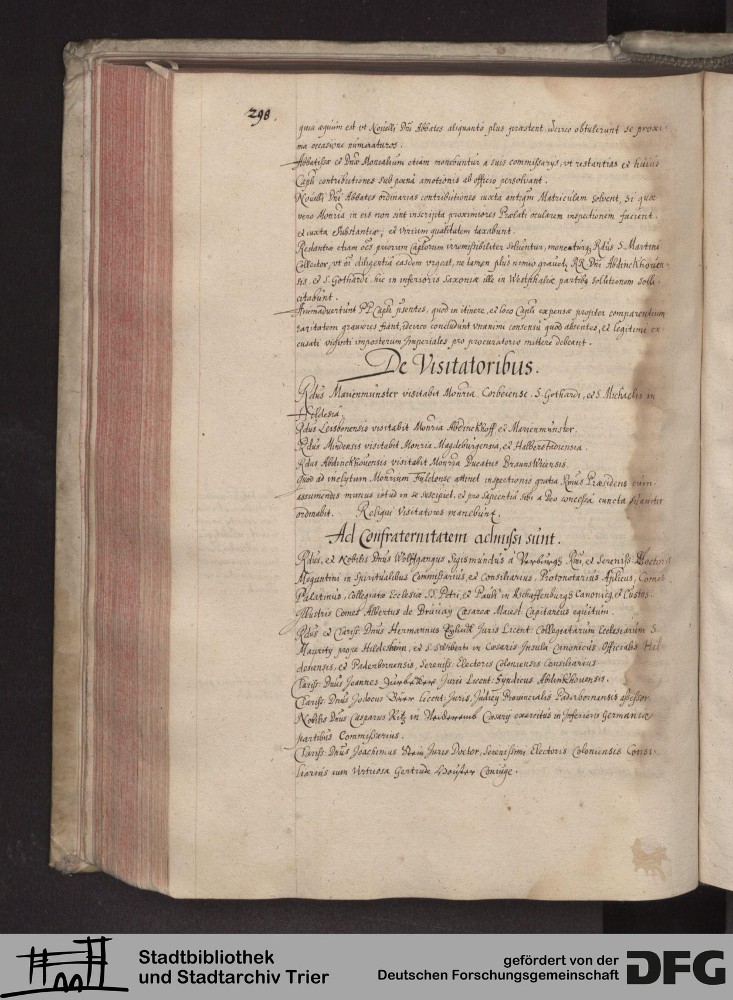 298.
quia aequum est vt Nouelli Dni Abbates aliquanto plus praestent, idcirco obtulerunt se proxi-
ma occasione numeraturos.
Abbatissae et Dnae Monialium etiam monebuntur a suis commissarys, vt restantias et huius
Capli contributiones sub poena amotionis ab officio persoluant.
Nouelli Dni Abbates ordinarias contributiones iuxta antiqm Matriculam soluent, Si quae
vero Monria in eis non sint inscripta proximiores Praelati ocularem inspectionem facient,
et iuxta substantiae, et virium qualitatem taxabunt.
Restantiae etiam oes priorum Caplorum irremissibiliter soluentur, moneaturq Rdus S. Martini
Collector, vt oi diligentia easdem vrgeat, ne tamen plus nimio grauetur, RR Dni Abdinckhouen-
sis, et S. Gothardi, hic in inferioris Saxoniae ille in Westphaliae partibus solutionem solli-
citabunt.
Animaduertunt PP Capli psentes, quod in itinere, et loco Capli expensae propter comparentium
raritatem grauiores fiant, idcirco concludunt vnanimi consensu quod absentes, et legitime ex-
cusati viginti imposterum Imperiales pro procuratorio mittere debeant.
De Visitatoribus.
Rdus Marienmunster visitabit Monria Corbeiense, S. Gothardi, et S. Michaelis in
Hildesia.
Rdus Leisbonensis visitabit Monria Abdinckhoff et Marienmunster.
Rdus Mindensis visitabit Monria Magdeburgensia, et Halberstadiensia.
Rdus Abdinckhouensis visitabit Monria Ducatus Braunswicensis.
Quod ad inclytum Monrium Fuldense attinet inspectionis gratia Rmus Praesidens eum
assumendis munus istud in se suscipiet, et pro sapientia sibi a Deo concessa cuncta suauiter
ordinabit. Reliqui Visitatores manebunt.
Ad Confraternitatem admissi sunt.
Rdus, et Nobilis Dnus Wolffgangus Sigismundus à Rmi, et Sereniss:
Moguntini in Spiritualibus Commissarius, et Consiliarius, Protonotarius Aplicus, Comes
Palatinus, Collegiatae Ecclesiae SS. Petri, et Pauli in Aschaffenburgk Canonicq et Custos.
Illustris Comes Albertus de Caesareae Maiest Capitaneus equitum.
Rdus et Clariss: Dnus Hermannus Juris Licent: Collegiatarum Ecclesiarum S.
Maurity prope Hildesheim, et S. Swiberti in Caesaris Insula Canonicus, Officialis Hil-
desiensis, et Paderbornensis, Sereniss: Electoris Coloniensis Consiliarius.
Clariss: Dnus Joannes Juris Licent: Syndicus Abdinkhouensis.
Clariss: Dnus Jodocus Licent: Juris, Judicy Prouincialis Paderbornensis assessor.
Nobilis Dnus Casparus in Caesary exercitus in Inferioris Germaniae
partibus Commissarius.
Clariss: Dnus Joachimus Juris Doctor, Serenissimi Electoris Coloniensis Consi-
liarius cum Virtuosa Gertrude Coniuge.
Stadtbibliothek
und Stadtarchiv Trier
gefördert von der
Deutschen Forschungsgemeinschaft
DFG